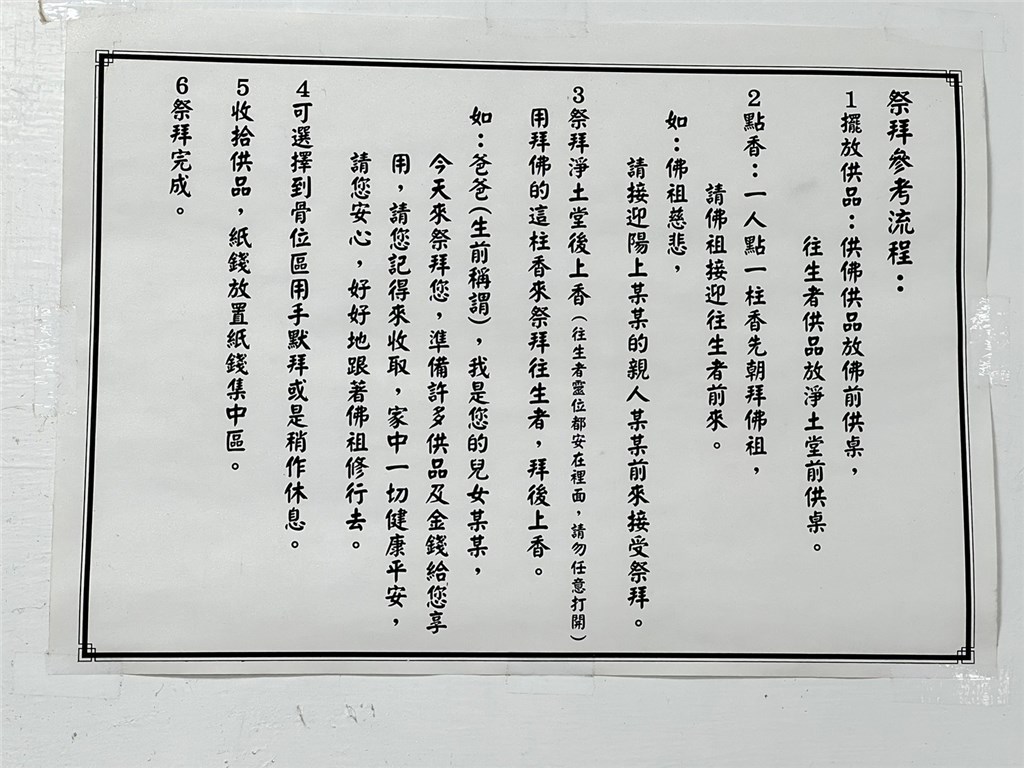 祭拜參考流程：
1擺放供品：供佛供品放佛前供桌，
往生者供品放淨土堂前供桌。
2點香：一人點一柱香先朝拜佛祖，
請佛祖接迎往生者前來。
如：佛祖慈悲，
請接迎陽上某某的親人某某前來接受祭拜。
3祭拜淨土堂後上香（往生者靈位都安在裡面，請勿任意打開）
用拜佛的這柱香來祭拜往生者，拜後上香。
如：爸爸（生前稱謂），我是您的兒女某某，
今天來祭拜您，準備許多供品及金錢給您享
用，請您記得來收取，家中一切健康平安，
請您安心，好好地跟著佛祖修行去。
4可選擇到骨位區用手默拜或是稍作休息。
5收拾供品，紙錢放置紙錢集中區。
6祭拜完成。